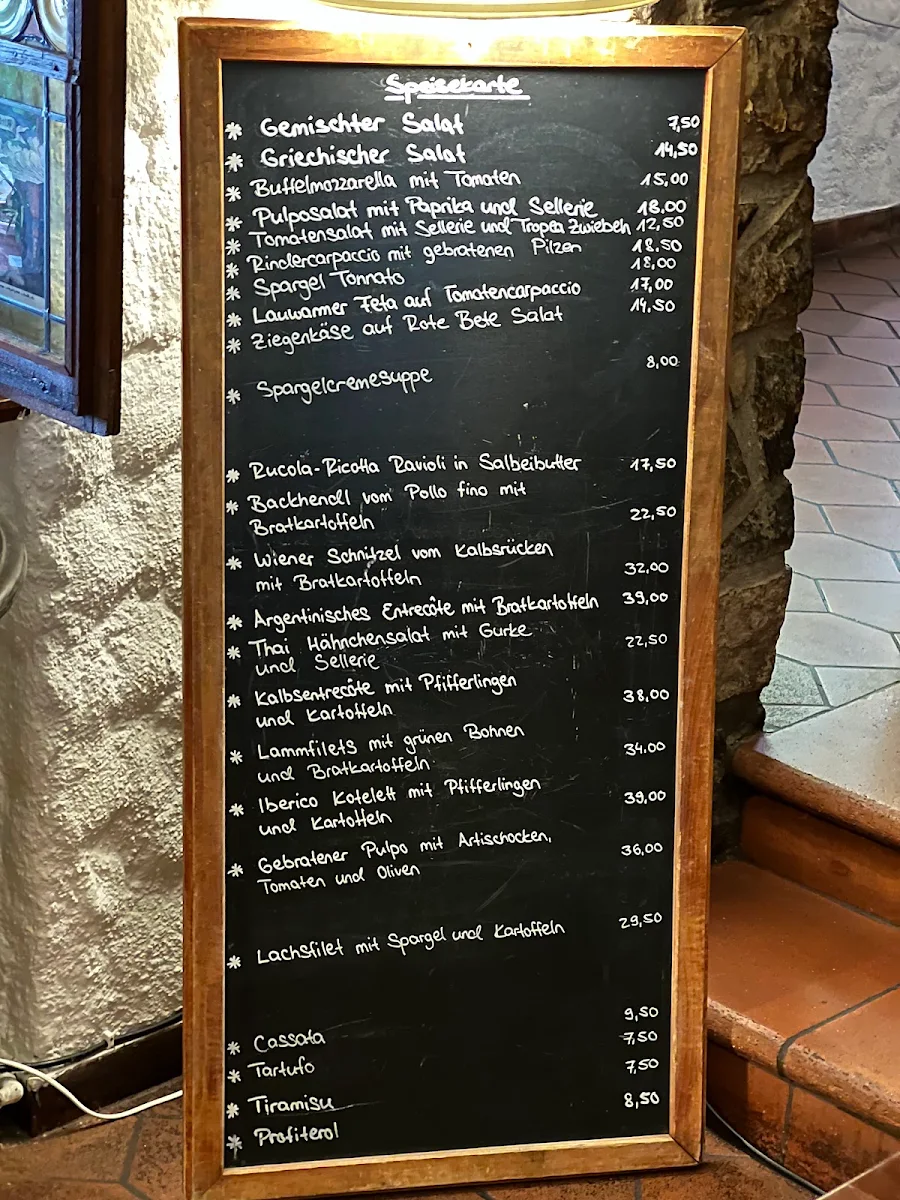 Speisekarte
* Gemischter Salat 7,50
* Griechischer Salat 14,50
* Büffelmozzarella mit Tomaten 15,00
* Pulposalat mit Paprika und Sellerie 18,00
* Tomatensalat mit Sellerie und Tropea Zwiebeln 12,50
* Rindercarpaccio mit gebratenen Pilzen 18.50
* Spargel Tonnato 18,00
* Lauwarmer Feta auf Tomatencarpaccio 17,00
* Ziegenkäse auf Rote Bete Salat 14,50
* Spargelcremesuppe 8,00
* Rucola-Ricotta Ravioli in Salbeibutter 17,50
* Backhendl vom Pollo fino mit
Bratkartoffeln 22,50
* Wiener Schnitzel vom Kalbsrücken
mit Bratkartoffeln 32,00
* Argentinisches Entrecôte mit Bratkartoffeln 39,00
* Thai Hähnchensalat mit Gurke 22,50
und Sellerie
* Kalbsentrecôte mit Pfifferlingen
und Kartoffeln 38,00
* Lammfilets mit grünen Bohnen
und Bratkartoffeln 34.00
* Iberico Kotelett mit Pfifferlingen
und Kartoffeln 39,00
* Gebratener Pulpo mit Artischocken,
Tomaten und Oliven 36,00
* Lachsfilet mit Spargel und Kartoffeln 29,50
* Cassata 9,50
* Tartufo 7,50
* Tiramisu 7,50
* Profiterol 8,50